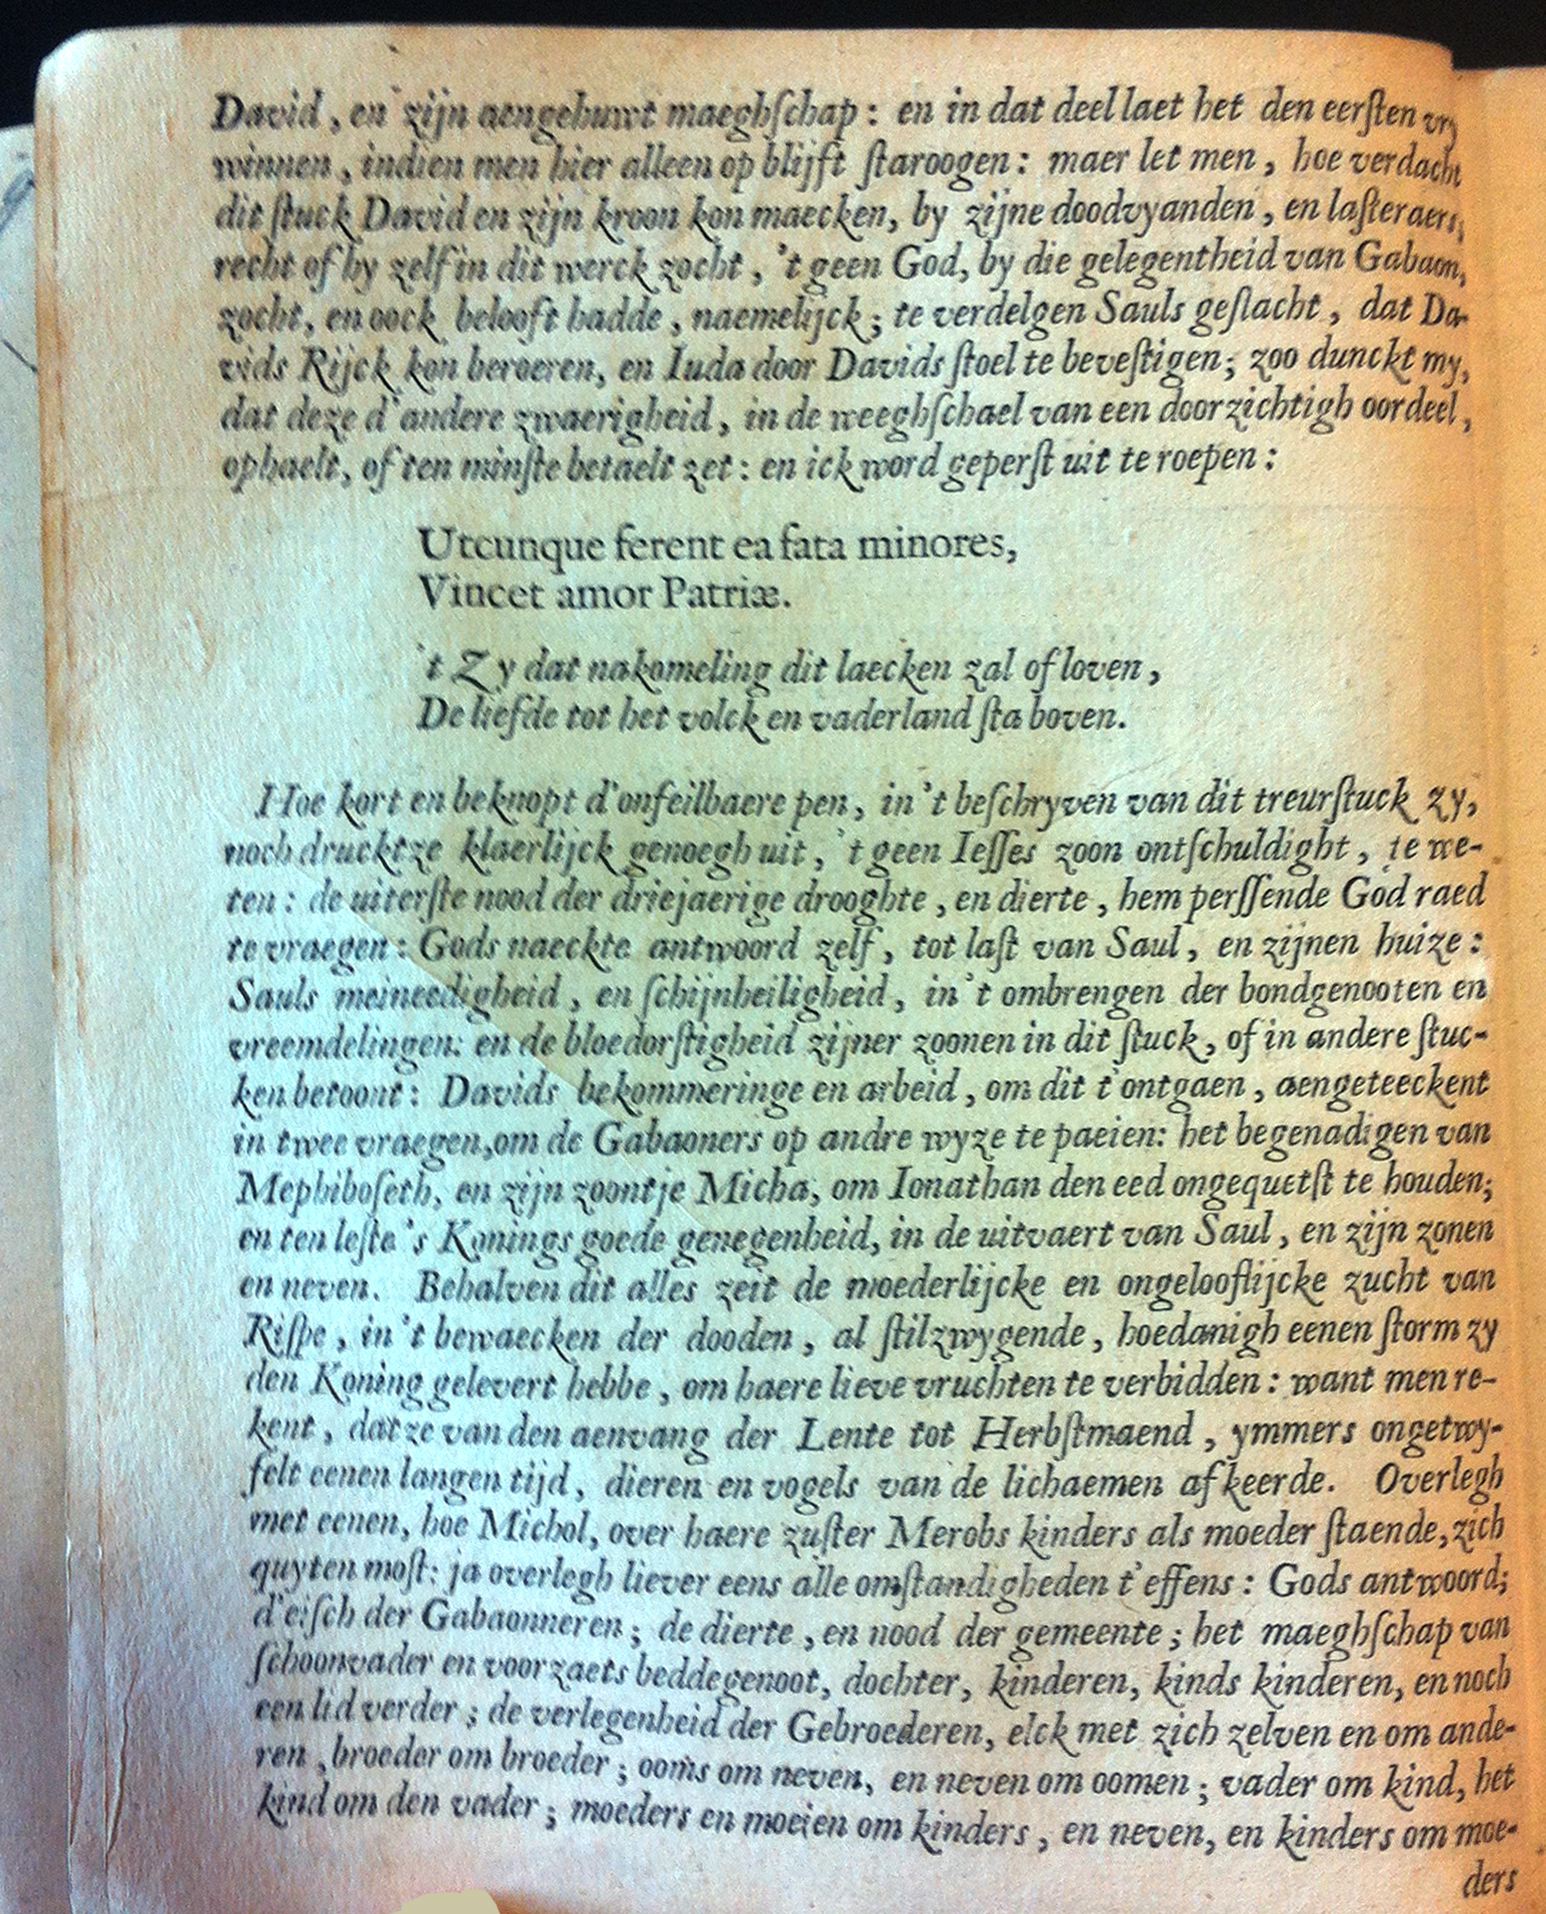 David, en zijn aengehuwt maeghſchap: en in dat deel laet het den eerſten vry
winnen, indien men hier alleen op blijft ſtaroogen: maer let men, hoe verdacht
dit ſtuck David en zijn kroon kon maecken, by zijne doodvyanden, en laſteraers,
recht of hy zelf in dit werck zocht, 't geen God, by die gelegentheid van Gabaon,
zocht, en oock belooft hadde, naemelijck; te verdelgen Sauls geſlacht, dat Da-
vids Rijck kon beroeren, en Iuda door Davids ſtoel te beveſtigen; zoo dunckt my,
dat deze d'andere zwaerigheid, in de weeghſchael van een doorzichtigh oordeel,
ophaelt, of ten minſte betaelt zet: en ick word geperſt uit te roepen:
Utcunque ferent ea fata minores,
Vincet amor Patriæ.
't Zy dat nakomeling dit laecken zal of loven,
De liefde tot het volck en vaderland ſta boven.
Hoe kort en beknopt d'onfeilbaere pen, in 't beſchryven van dit treurſtuck zy,
noch drucktze klaerlijck genoegh uit, 't geen Ieſſes zoon ontſchuldight, te we-
ten: de uiterſte nood der driejaerige drooghte, en dierte, hem perſſende God raed
te vraegen: Gods naeckte antwoord zelf, tot laſt van Saul, en zijnen huize:
Sauls meineedigheid, en ſchijnheiligheid, in 't ombrengen der bondgenooten en
vreemdelingen: en de bloedorſtigheid zijner zoonen in dit ſtuck, of in andere ſtuc-
ken betoont: Davids bekommeringe en arbeid, om dit t'ontgaen, aengeteeckent
in twee vraegen, om de Gabaoners op andre wyze te paeien: het begenadigen van
Mephiboſeth, en zijn zoontje Micha, om Ionathan den eed ongequetſt te houden;
en ten leſte 's Konings goede genegenheid, in de uitvaert van Saul, en zijn zonen
en neven. Behalven dit alles zeit de moederlijcke en ongelooflijcke zucht van
Riſpe, in 't bewaecken der dooden, al ſtilzwygende, hoedanigh eenen ſtorm zy
den Koning gelevert hebbe, om haere lieve vruchten te verbidden: want men re-
kent, datze van den aenvang der Lente tot Herbſtmaend, ymmers ongetwy-
felt eenen langen tijd, dieren en vogels van de lichaemen afkeerde. Overlegh
met eenen, hoe Michol, over haere zuſter Merobs kinders als moeder ſtaende, zich
quyten moſt: ja overlegh liever eens alle omſtandigheden t'effens: Gods antwoord;
d'eiſch der Gabaonneren; de dierte, en nood der gemeente; het maeghſchap van
ſchoonvader en voorzaets beddegenoot, dochter, kinderen, kinds kinderen, en noch
een lid verder; de verlegenheid der Gebroederen, elck met zich zelven en om ande-
ren, broeder om broeder; ooms om neven, en neven om oomen; vader om kind, het
kind om den vader; moeders en moeien om kinders, en neven, en kinders om moe-
ders